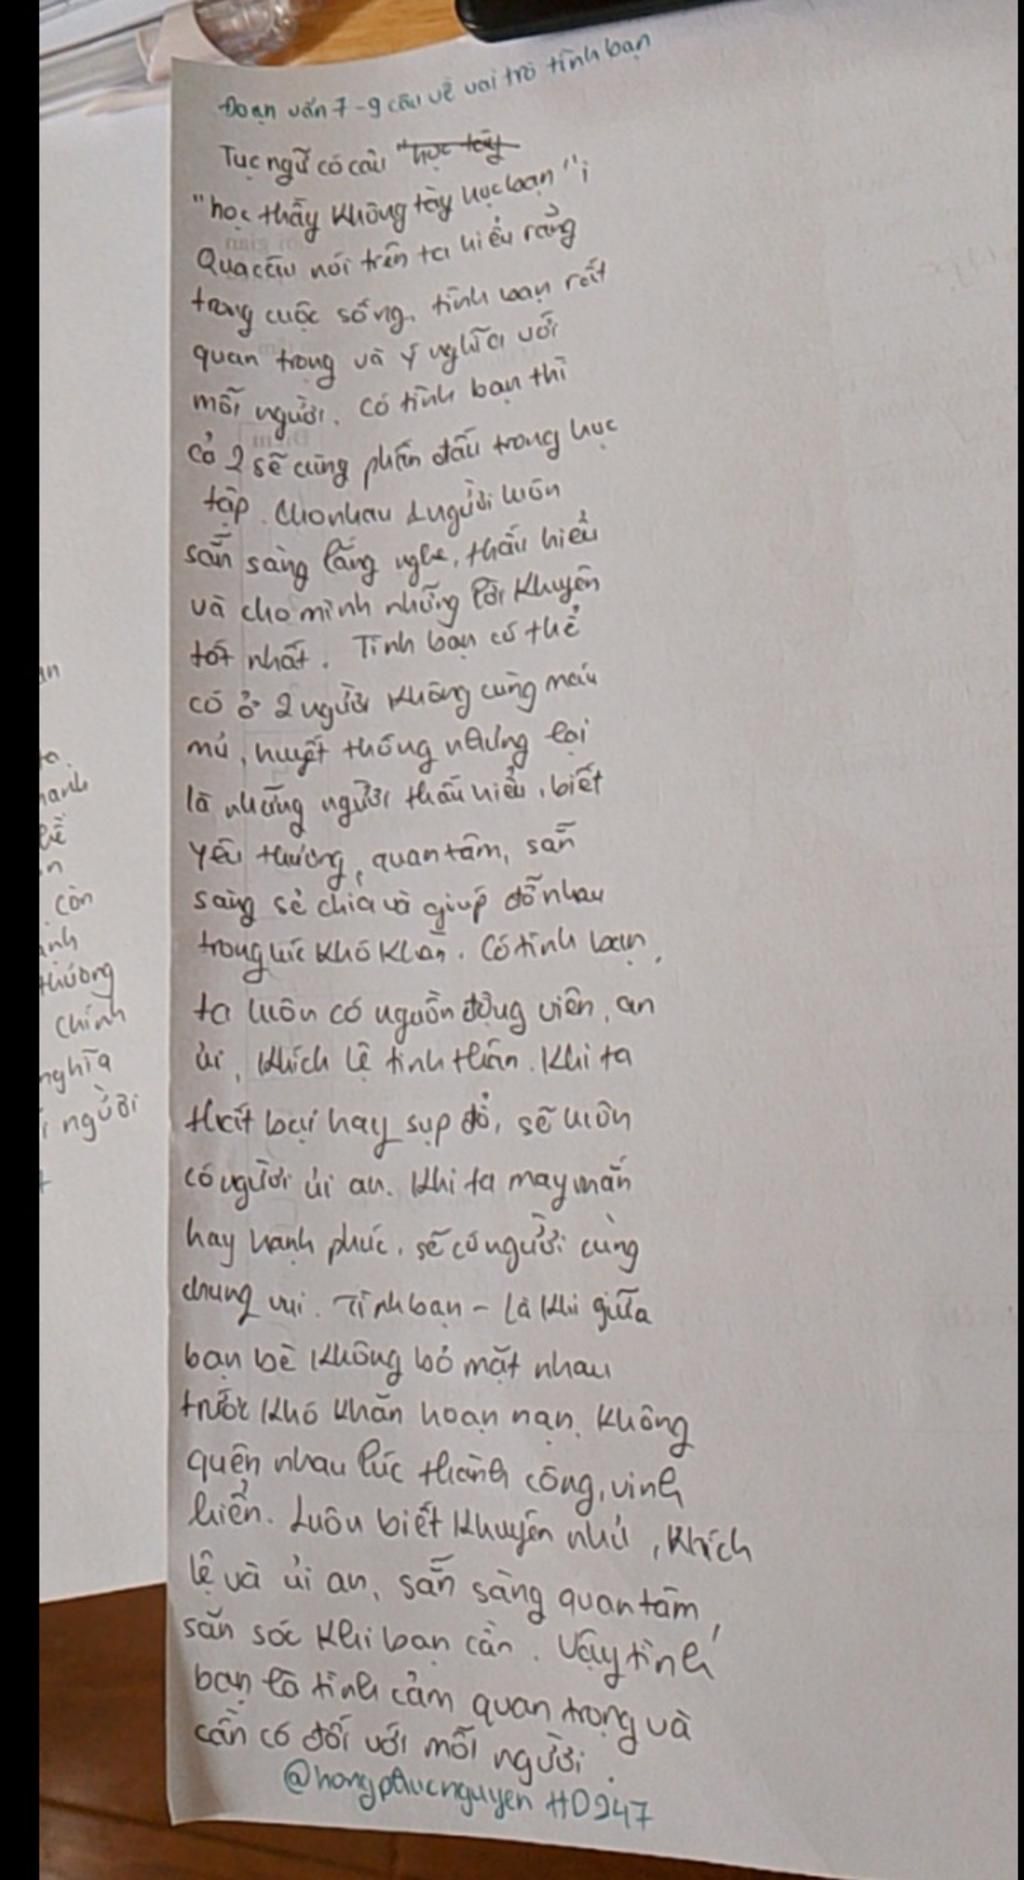 Đoạn văn 7-9 câu về vai trò tình bạn
Tục ngữ có câu "học tày
"học thầy không tày học bạn";
Qua câu nói trên ta hiểu rằng
trong cuộc sống, tình bạn rất
quan trọng và ý nghĩa với
mỗi người. Có tình bạn thì
cả 2 sẽ cùng phấn đấu trong học
tập. Cho nhau 1 người luôn
sẵn sàng lắng nghe, thấu hiểu
và cho mình những lời khuyên
tốt nhất. Tình bạn có thể
có ở 2 người không cùng máu
mủ, huyết thống nhưng lại
là những người thấu hiểu, biết
yêu thương, quan tâm, sẵn
sàng sẻ chia và giúp đỡ nhau
trong lúc khó khăn. Có tình bạn,
ta luôn có nguồn động viên, an
ủi, khích lệ tinh thần. Khi ta
thất bại hay sụp đổ, sẽ luôn
có người ủi an. Khi ta may mắn
hay hạnh phúc, sẽ có người cùng
chung vui. Tình bạn - là khi giữa
bạn bè không bỏ mặt nhau
trước khó khăn hoạn nạn, không
quên nhau lúc thành công, vinh
hiển. Luôn biết khuyên nhủ, khích
lệ và ủi an, sẵn sàng quan tâm,
săn sóc khi bạn cần. Vậy tình
bạn là tình cảm quan trọng và
cần có đối với mỗi người.
@hongphucnguyenHD247
còn
thương
chính
nghĩa
người